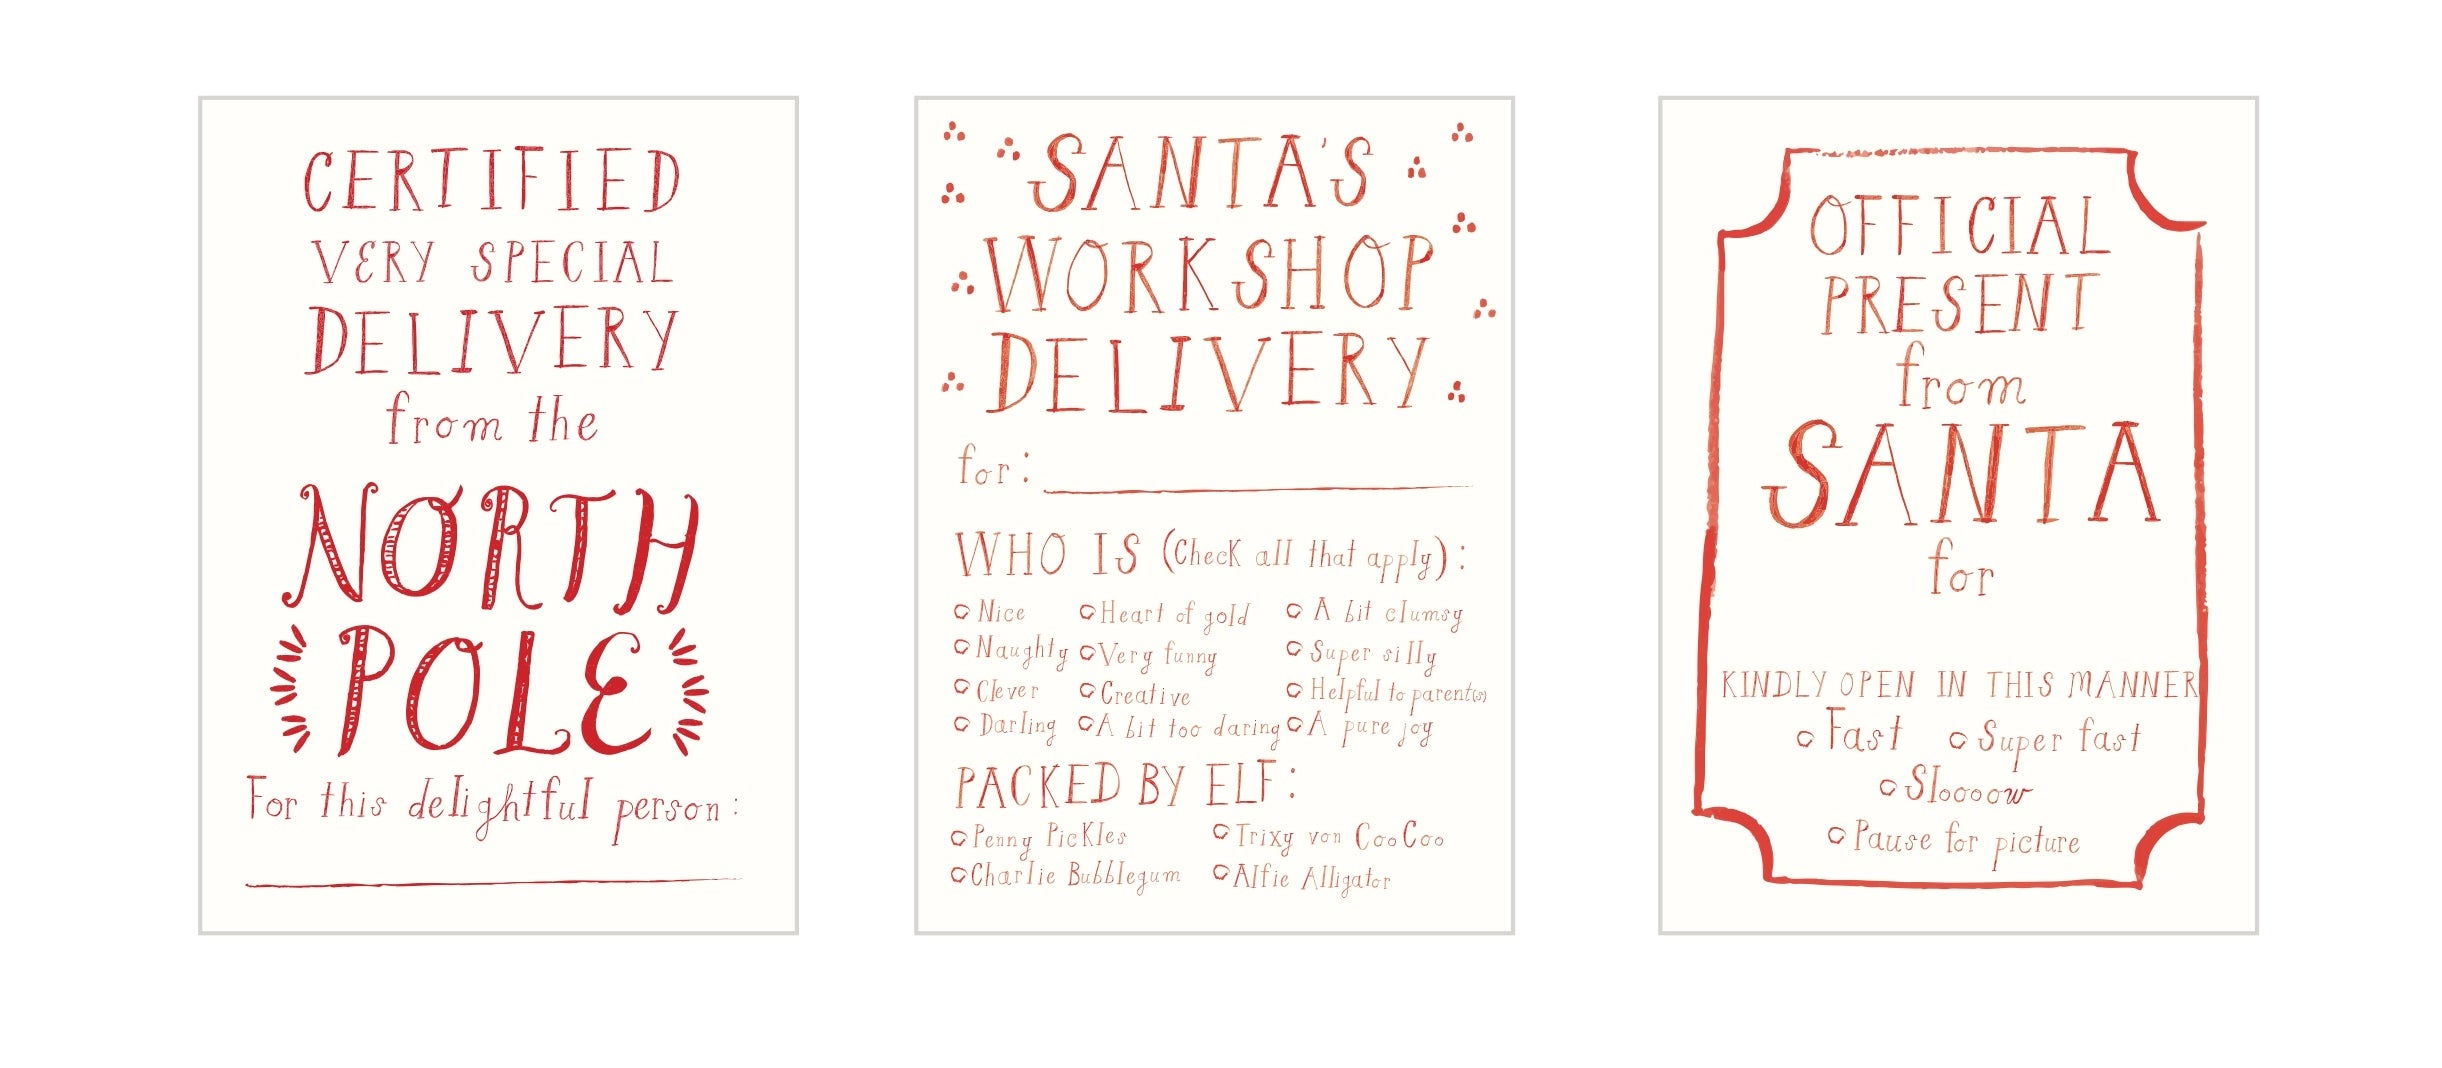 CERTIFIED
VERY SPECIAL
DELIVERY
from the
NORTH
POLE
For this delightful person:
SANTA'S
WORKSHOP
DELIVERY
for:
WHO IS (Check all that apply):
Nice Heart of gold A bit clumsy
Naughty Very funny Super silly
Clever Creative Helpful to parent(s)
Darling A bit too daring A pure joy
PACKED BY ELF:
Penny Pickles Trixy von CooCoo
Charlie Bubblegum Alfie Alligator
OFFICIAL
PRESENT
from
SANTA
for
KINDLY OPEN IN THIS MANNER
Fast Super fast
Sloooow
Pause for picture